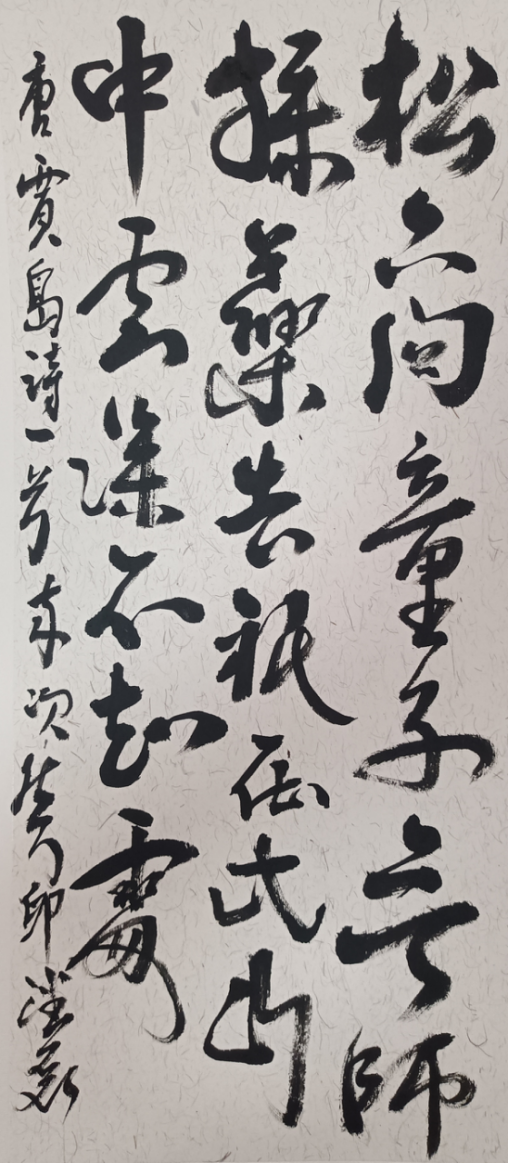 松下問童子言師
採藥去祇在此山
中雲深不知處
唐賈島詩一首年次癸卯